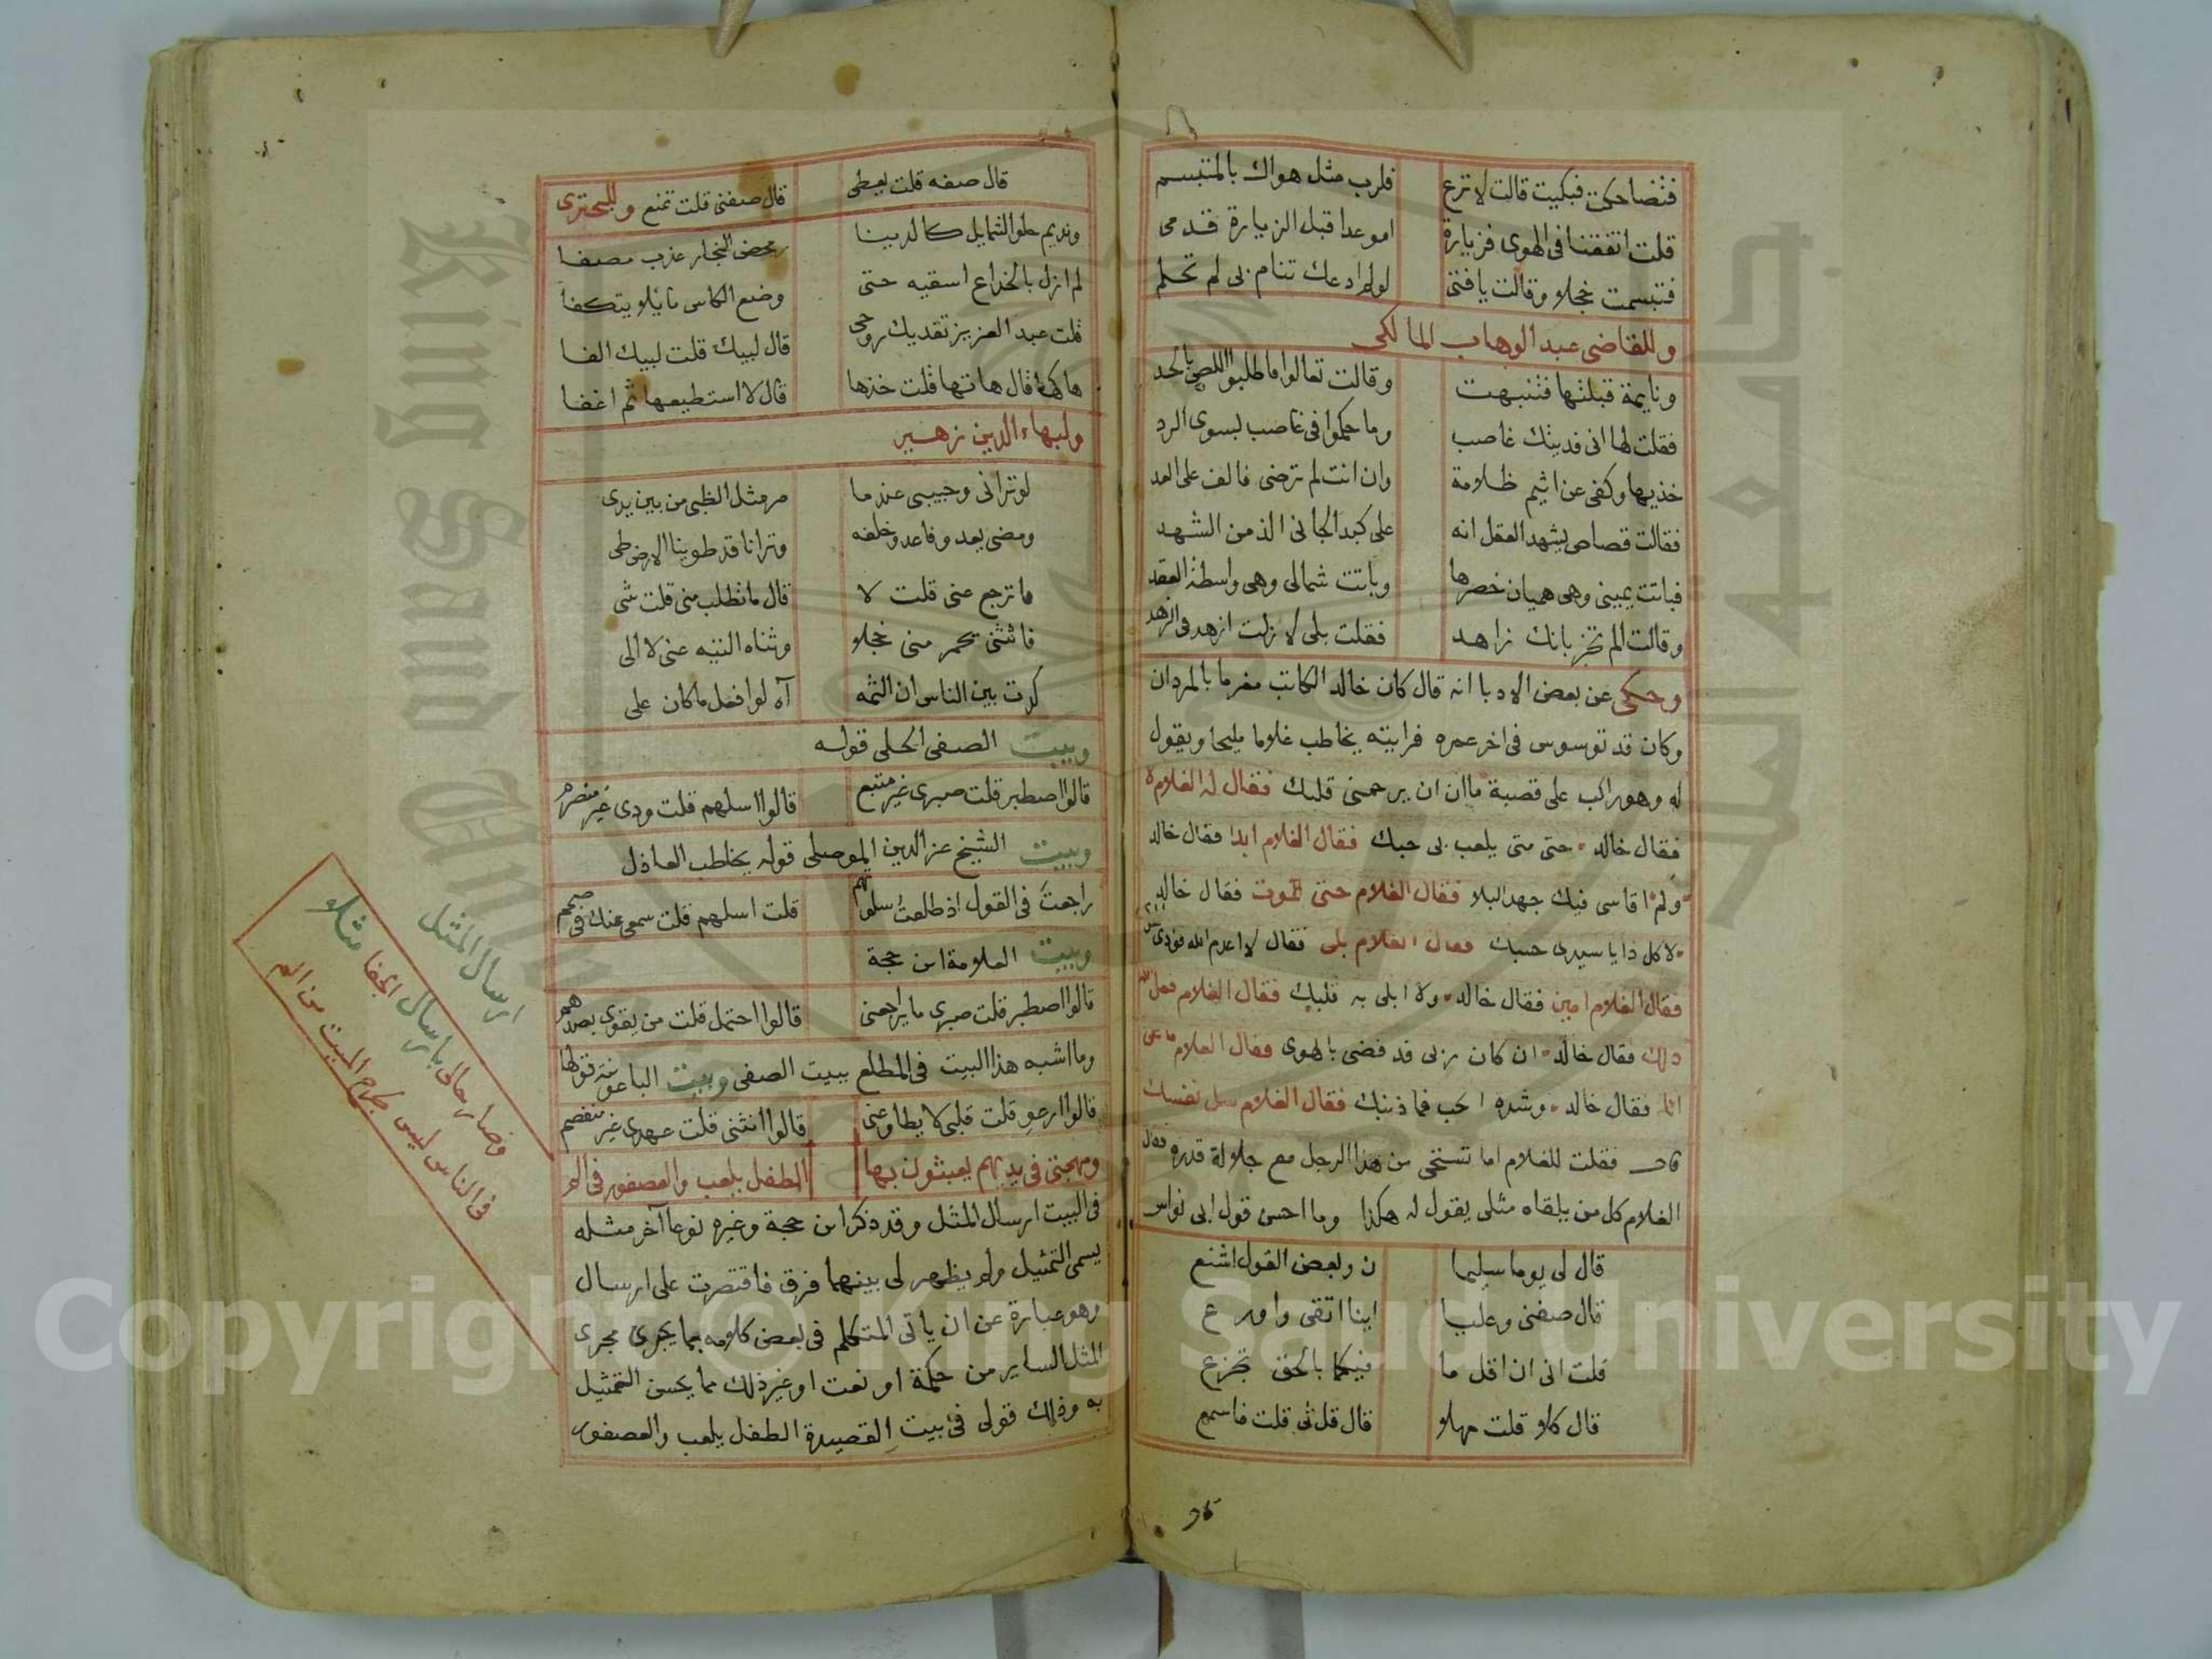 فتضاحكت فبكيت قالت لا ترع فلرب مثل هواك بالمتبسم
قلت اتفقنا فى الهوى فزيارة اموعدا قبل الزيارة قدمى
فتبسمت خجلا وقالت يا فتى لو لم ادعك تنام بى لم تحلم
وللقاضى عبد الوهاب المالكى
ونايمة قبلتها فتنبهت وقالت تعالوا فاطلبوا اللص بالحد
فقلت لها انى فديتك غاصب وما حكموا فى غاصب بسوى الرد
خذيها وكفى عن اثيم ظلامة وان انت لم ترضى فالف على العد
فقالت قصاص يشهد العقل انه على كبد الجانى الذ من الشهد
فباتت يمينى وهى هميان خصرها وباتت شمالى وهى واسطة العقد
وقالت الم تخبر بانك زاهد فقلت بلى لا زلت ازهد فى الزهد
وحكى عن بعض الادبا انه قال كان خالد الكاتب مغرما بالمردان
وكان قد توسوس فى اخر عمره فرايته يخاطب غلاما مليحا ويقول
له وهو راكب على قصبة ما ان ان يرحمنى قلبك فقال له الغلام لا
فقال خالد حتى متى يلعب بى حبك فقال الغلام ابدا فقال خالد
ولم اقاسى فيك جهد البلا فقال الغلام حتى تموت فقال خالد
لا كل ذا يا سيدى حسبك فقال الغلام بلى فقال لا اعدم الله فؤادى
فقال الغلام امين فقال خالد ولا ابلى به قلبك فقال الغلام فعل الله
ذلك فقال خالد ان كان ربى قد قضى بالهوى فقال الغلام ما على
انا فقال خالد وشدة الحب فما ذنبك فقال الغلام سل نفسك
قال فقلت للغلام اما تستحى من هذا الرجل مع جلالة قدره فقال
الغلام كل من يلقاه مثلى يقول له هكذا وما احسن قول ابى نواس
قال لى يوما سليما ن وبعض القول اشنع
قال صفنى وعليا اينا اتقى واورع
قلت انى ان اقل ما فيكما بالحق تجزع
قال كلا قلت مهلا قال قل لى قلت فاسمع
قال صفه قلت يعطى قال صفنى قلت تمنع وللبحترى
ونديم حلو الشمايل كالدينا ر محض النجار عذب مصفا
لم ازل بالخداع اسقيه حتى وضع الكاس مايلا يتكفا
قلت عبد العزيز تفديك روحى قال لبيك قلت لبيك الفا
هاكها قال هاتها قلت خذها قال لا استطيعها ثم اغفا
ولبهاء الدين زهير
لو ترانى وحبيبى عندما مر مثل الظبى من بين يدى
ومضى يعدو فاعدو خلفه وترانا قد طوينا الارض طى
ما ترجع عنى قلت لا قال ما تطلب منى قلت شى
فانثنى يحمر منى خجلا وثناه التيه عنى لا الى
كدت بين الناس ان الثمه آه لو افعل ما كان على
وبيت الصفى الحلى قوله
قالوا اصطبر قلت صبرى غير متبع قالوا اسلهم قلت ودى غير منصرم
وبيت الشيخ عز الدين الموصلى قوله يخاطب العاذل
راجعت فى القول اذ طلعت سلوتهم قلت اسلهم قلت سمعى عنك فى صمم
وبيت العلامة ابن حجة
قالوا اصطبر قلت صبرى ما يراجعنى قالوا احتمل قلت من يقوى بصدهمو
وما اشبه هذا البيت فى المطلع ببيت الصفى وبيت الباعونية قولها
قالوا ارعو قلت قلبى لا يطاوعنى قالوا انثنى قلت عهدى غير منفصم
ومهجتى فى يديهم يعبثون بها الطفل يلعب والعصفور فى الم
فى البيت ارسال المثل وقد ذكر ابن حجة وغيره نوعا آخر مثله
يسمى التمثيل ولم يظهر لى بينهما فرق فاقتصرت على ارسال
وهو عبارة عن ان ياتى المتكلم فى بعض كلامه بما يجرى مجرى
المثل الساير من حكمة او نعت او غير ذلك مما يحسن التمثيل
به وذلك قولى فى بيت القصيدة الطفل يلعب والعصفور
ارسال المثل
وصار حالى بارسال الجفا مثلا
فى الناس ليس جراح الميت من الم
King Saud University
Copyright © King Saud University